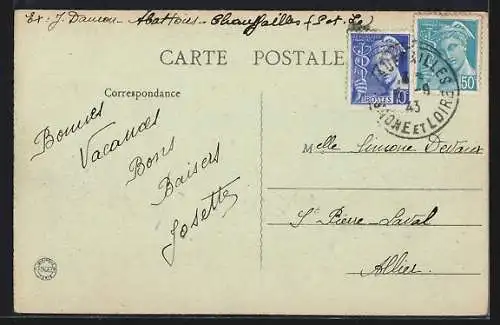 Ex: J. Damon - Abattoirs - Chauffailles (S et L.)
CARTE POSTALE
Correspondance
Bonnes
Vacances
Bons
Baisers
Josette
POSTES 10
50
43
SAONE ET LOIRE
Melle Simone Devaux
St Pierre-Laval
Allier